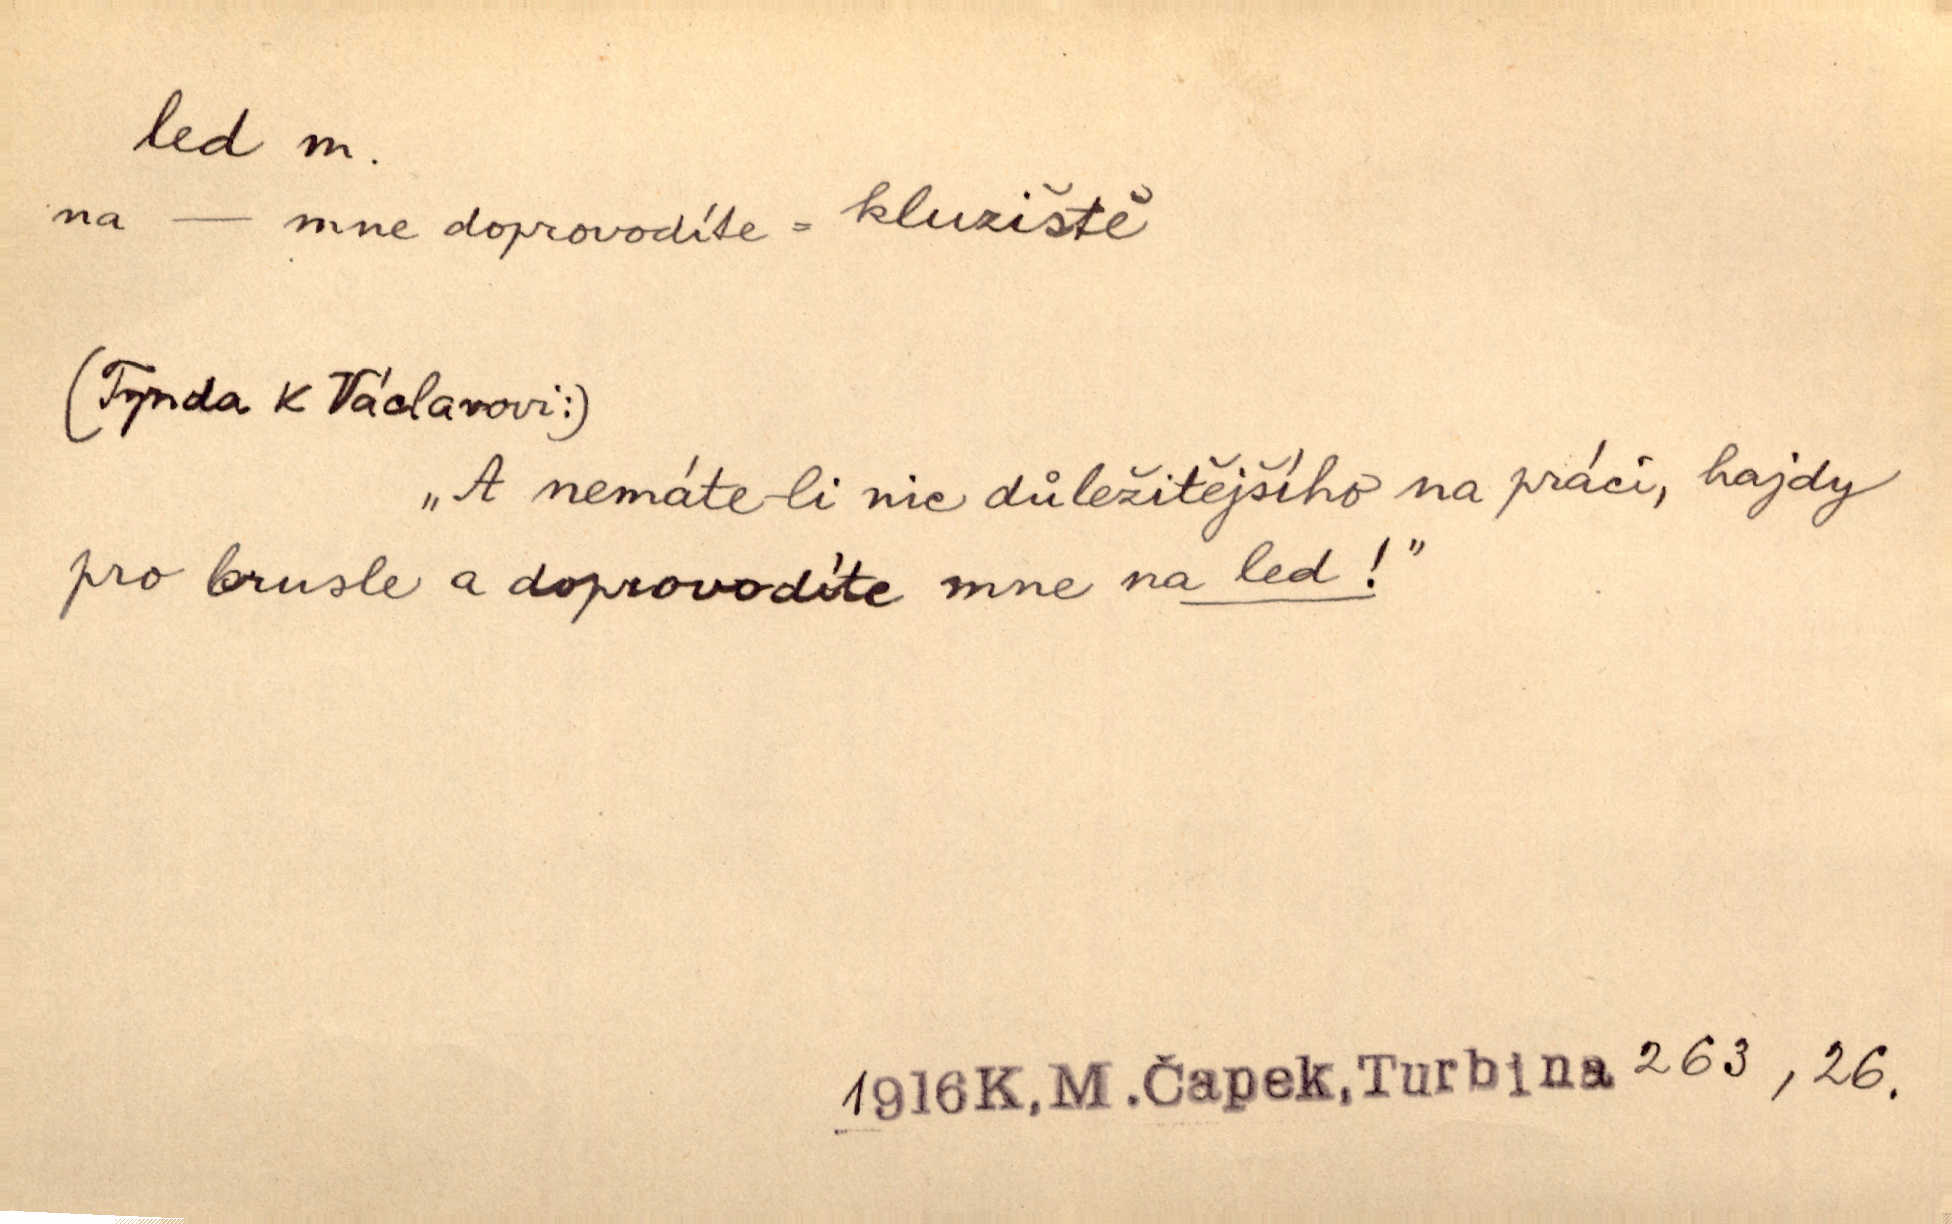 led m.
na — mne doprovodíte = kluziště
(Tynda k Václavovi:)
„A nemáte-li nic důležitějšího na práci, hajdy
pro brusle a doprovodíte mne na led!"
1916K,M.Čapek,Turbina 263, 26.